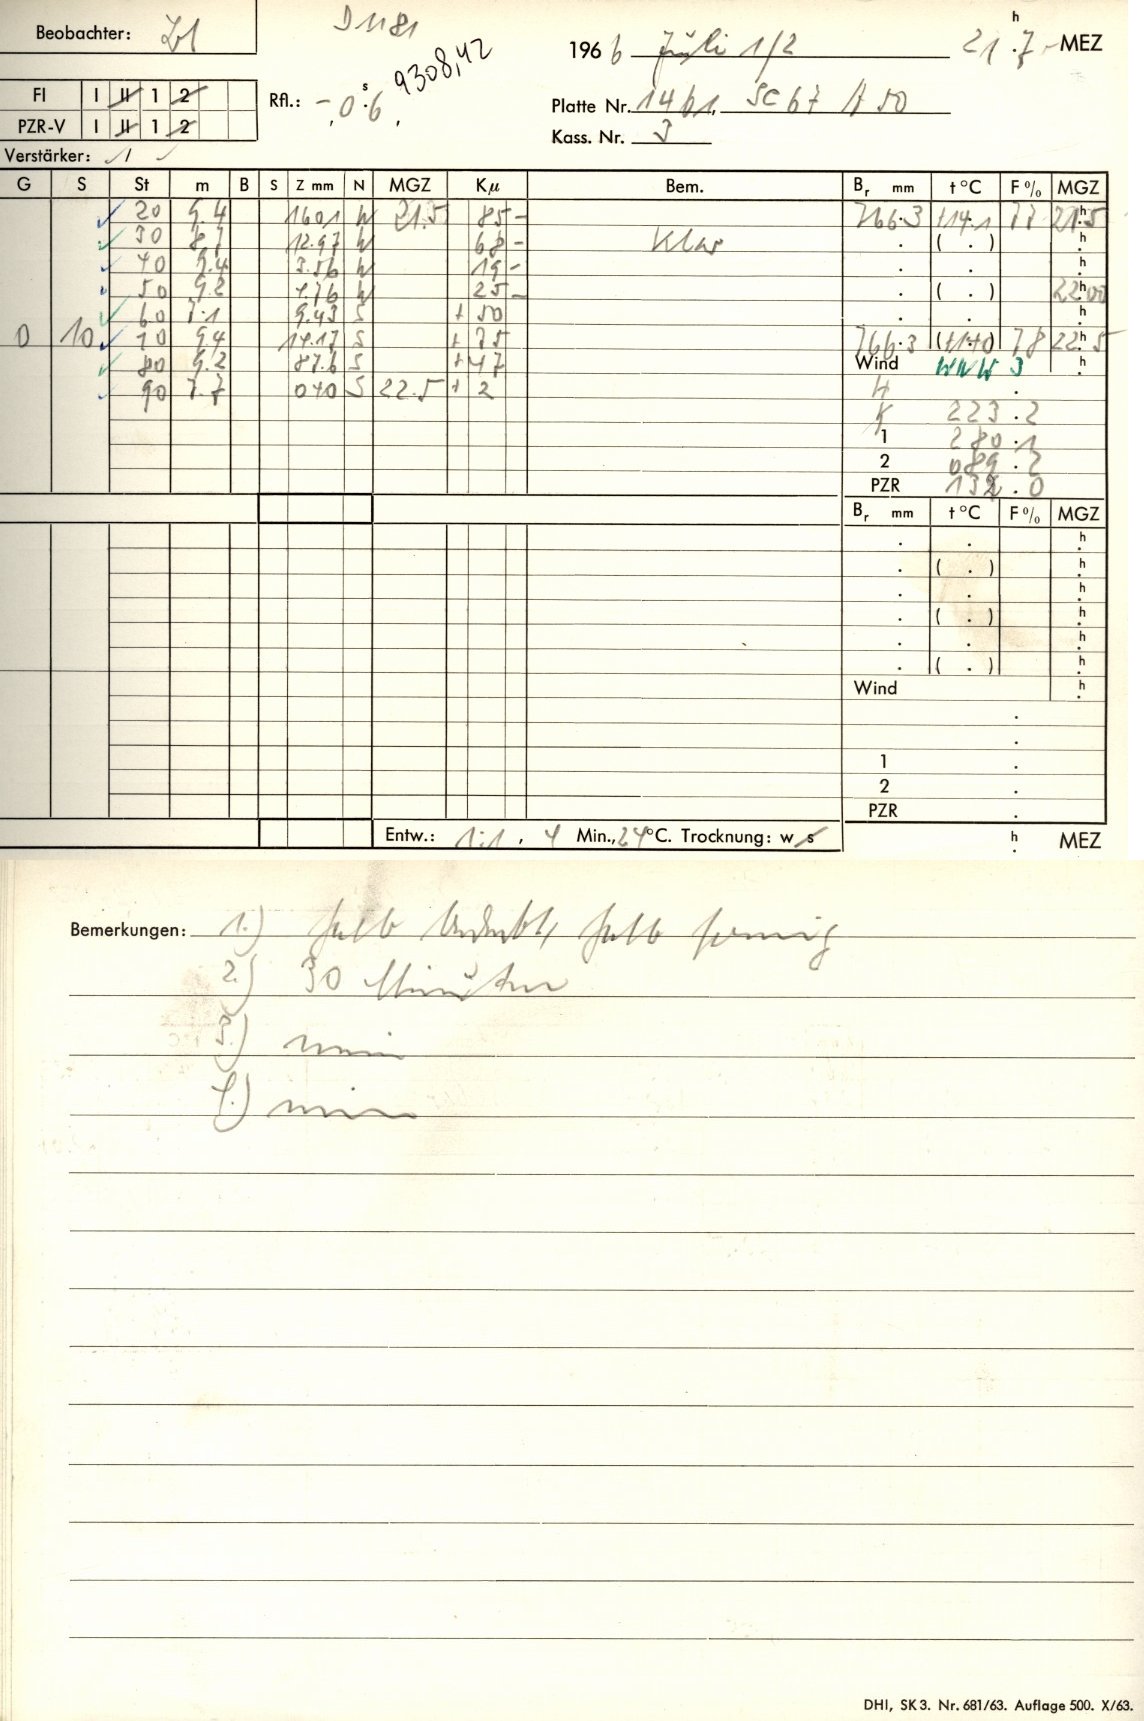 D 1181
Beobachter: Zl
9308,42
1966 Juli 1/2 21 h .7 MEZ
FI I II 1 2
Rfl.: -0 s .6
PZR-V I II 1 2
Platte Nr. 1461, SC 67 A 50
Kass. Nr. 3
Verstärker: 1
G S St m B S Z mm N MGZ Kμ Bem. Br mm t °C F % MGZ
20 9.4 1601 W 21.5 85 - 766.3 +14.1 77 21 h .5
30 8.7 12.97 W 68 - Klar . ( . ) h .
40 9.4 3.56 W 19 - . . h .
50 9.2 4.76 W 25 - . ( . ) 22 h 00
60 7.1 9.43 S + 50 . . h .
0 10 70 9.4 14.17 S + 75 766.3 (+14.0) 78 22 h .5
80 9.2 87.6 S + 47 Wind WNW 3 h .
90 7.7 040 S 22.5 + 2 H .
K 223.2
1 280.1
2 089.2
PZR 132.0
Br mm t °C F % MGZ
. . h .
. ( . ) h .
. . h .
. ( . ) h .
. . h .
. ( . ) h .
Wind h .
.
.
1 .
2 .
PZR .
Entw.: 1:1, 4 Min., 24 °C. Trocknung: w s h . MEZ
Bemerkungen: 1.) halb bedeckt, halb sonnig
2.) 30 Minuten
3.) nein
4.) nein
DHI, SK 3. Nr. 681/63. Auflage 500. X/63.